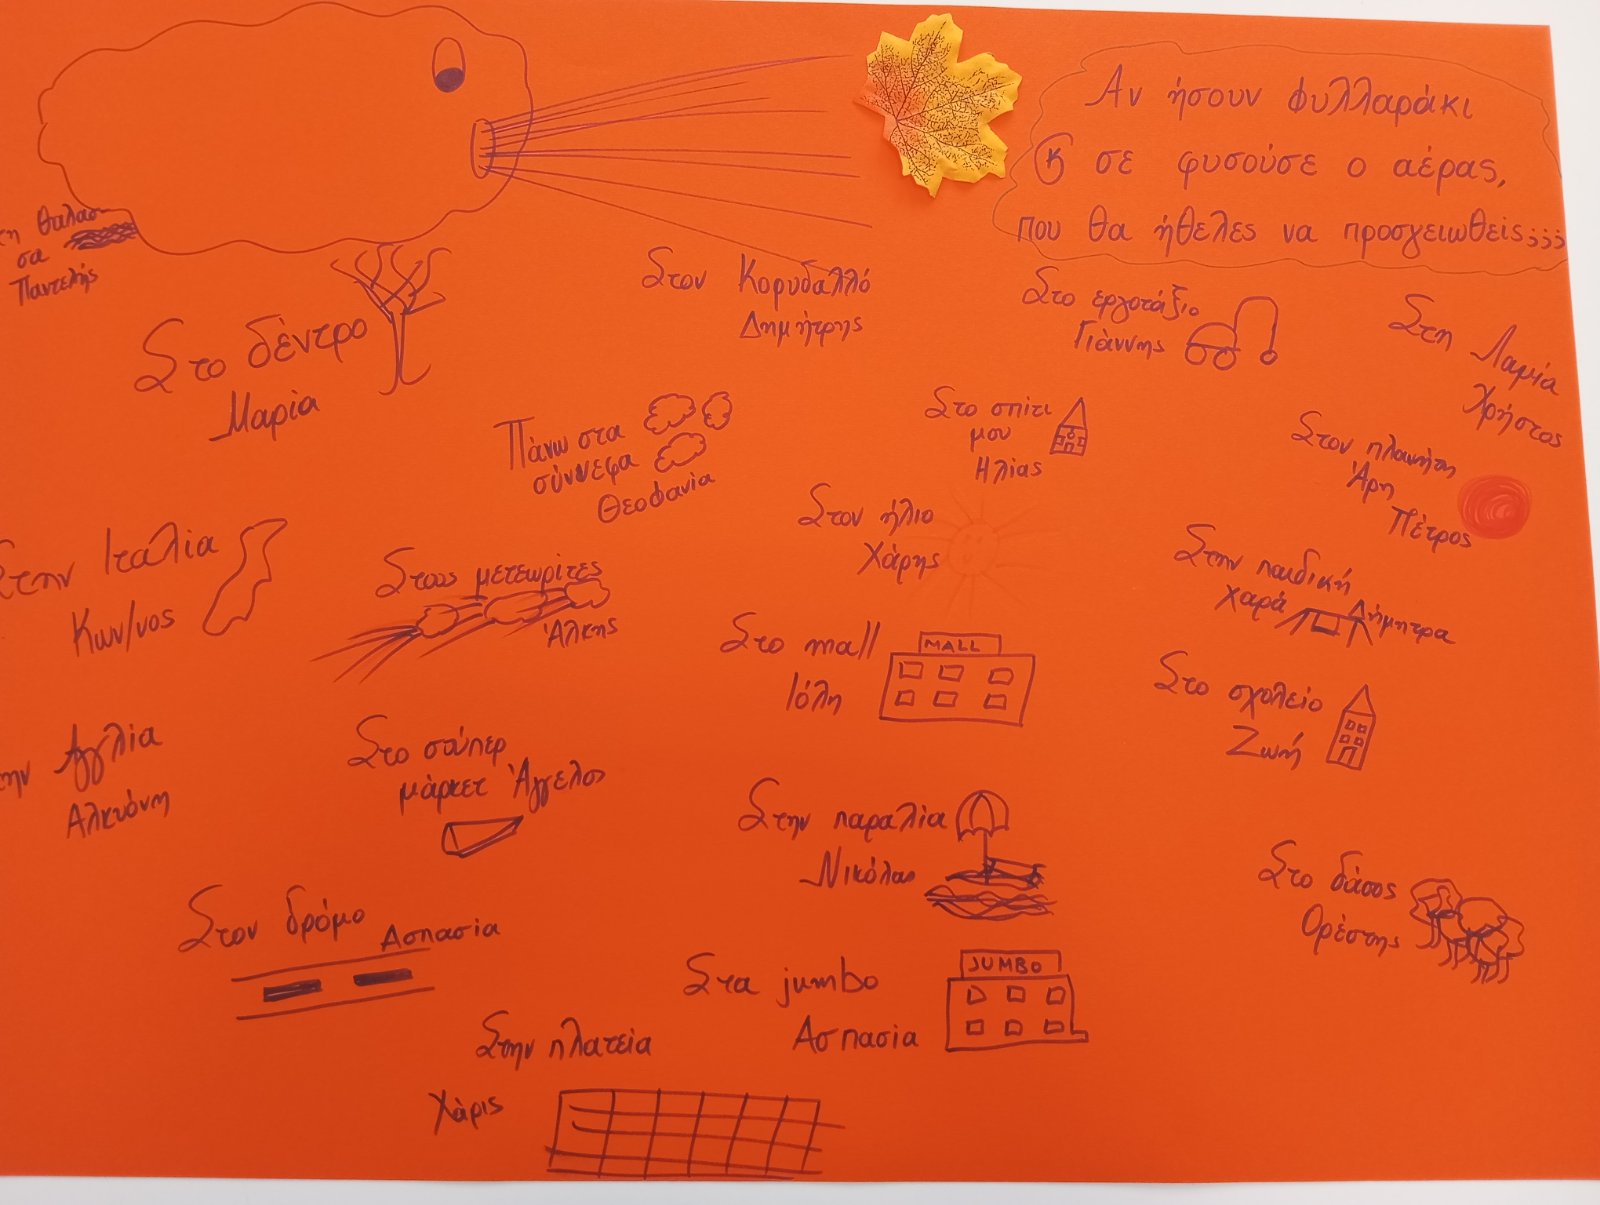 Αν ήσουν φυλλαράκι
κ σε φυσούσε ο αέρας,
που θα ήθελες να προσγειωθείς;;;
θαλασ-
σα
Παντελής
Στο δέντρο
Μαρία
Στον Κορυδαλλό
Δημήτρης
Στο εργοτάξιο
Γιάννης
Στη Λαμία
Χρήστος
Πάνω στα
σύννεφα
Θεοφανία
Στο σπίτι
μου
Ηλίας
Στον πλανήτη
Άρη
Πέτρος
Στην Ιταλία
Κων/νος
Στους μετεωρίτες
Άλκης
Στον ήλιο
Χάρης
Στην παιδική
χαρά Δήμητρα
Στο mall
MALL
Ιόλη
Στο σχολείο
Ζωή
Αγγλία
Αλκυόνη
Στο σούπερ
μάρκετ Άγγελος
Στην παραλία
Νικόλας
Στο δάσος
Ορέστης
Στον δρόμο
Ασπασία
Στα jumbo
JUMBO
Ασπασία
Στην πλατεία
Χάρις